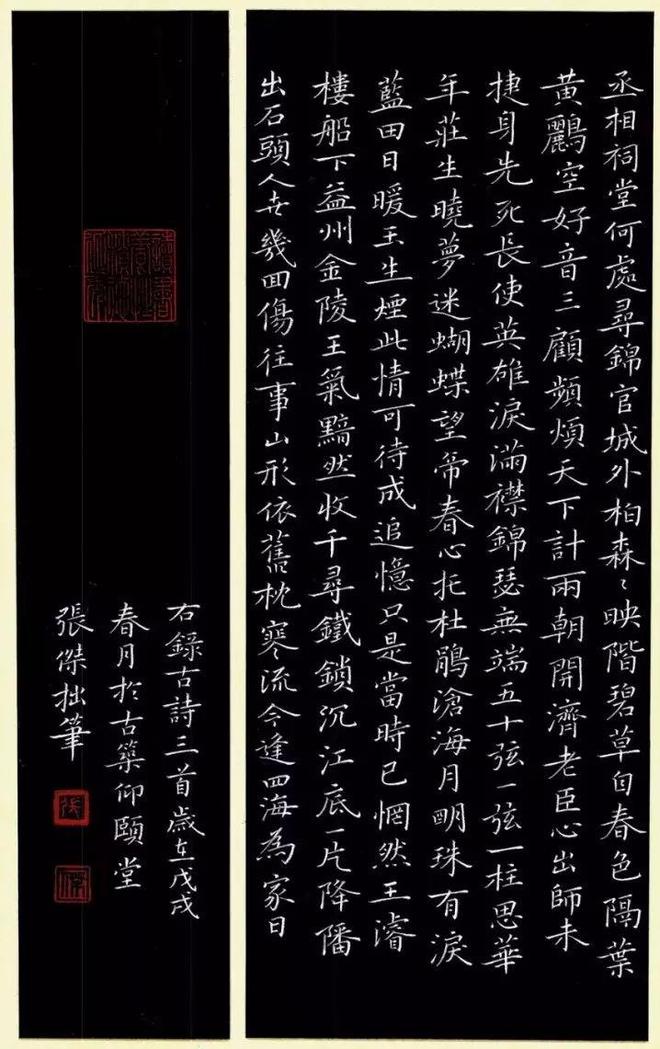 丞相祠堂何處尋錦官城外柏森〻映階碧草自春色隔葉
黃鸝空好音三顧頻煩天下計兩朝開濟老臣心出師未
捷身先死長使英雄淚滿襟錦瑟無端五十弦一弦一柱思華
年莊生曉夢迷蝴蝶望帝春心托杜鵑滄海月朙珠有淚
藍田日暖玉生煙此情可待成追憶只是當時已惘然王濬
樓船下益州金陵王氣黯然收千尋鐵鎖沉江底一片降旛
出石頭人世幾回傷往事山形依舊枕寒流今逢四海為家日
右錄古詩三首歲在戊戌
春月於古築仰頤堂
張傑拙筆
張
傑